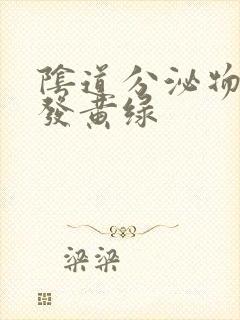 陰道分泌物
發黄绿
梁梁